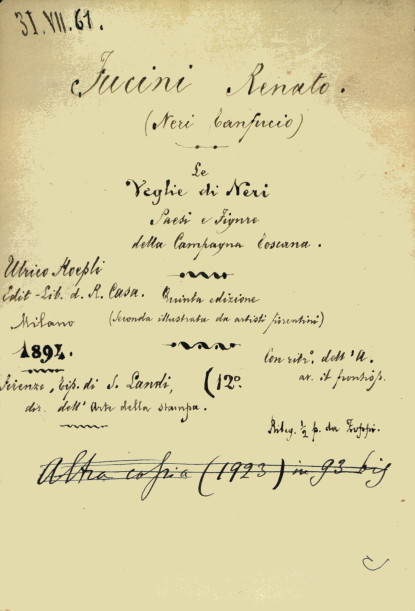 31.VII.61.
Fucini Renato.
(Neri Tanfucio)
Le
Veglie di Neri
Paesi e Figure
della Campagna Toscana.
Ulrico Hoepli
Edit-Lib. d. R. Casa. Quinta edizione
Milano (Seconda illustrata da artisti fiorentini)
1894. Con ritr.º dell'A.
Firenze, tip. di S. Landi, (12º. av. il frontisp.
dir. dell'Arte della stampa.
Rileg. ½ p. da
Altra copia (1923) in 93 bis